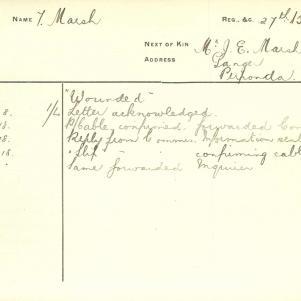 NAME T. Marsh
REG. &C. 27th B
NEXT OF KIN Mr J. E. Marsh
ADDRESS Lange
Peronda.
"Wounded"
8. 1/L Letter acknowledged.
18. P/Cable, confirmed, forwarded Com
18. Reply from Commee. Information sent
18. " Slip " confirming cabl
Same forwarded Inquirer